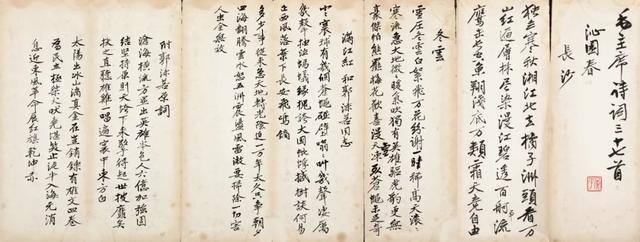 毛主席诗词三十七首
沁園春
長沙
寒秋湘江北去橘子洲頭看万
山红遍層林尽染漫江碧透百舸流
鹰击长空鱼翔浅底万類霜天竞自由
冬雲
雪压冬雲白絮飛万花纷谢一时稀高天滚滚
寒流急大地微微暖氣吹獨有英雄驅虎豹更無
豪傑怕熊羆梅花歡喜漫天雪凍死苍蝇未足奇
满江红 和郭沫若同志
小小寰球有幾個蒼蝇碰壁嗡嗡叫幾聲凄厲
幾聲抽泣螞蟻缘槐誇大国蚍蜉撼樹談何易
正西風落葉下長安飛鸣镝
多少事從來急天地转光陰迫一万年太久只争朝夕
四海翻騰雲水怒五洲震盪風雷激要掃除一切害
人虫全無敌
附郭沫若原詞
滄海横流方显出英雄本色人六億加強团
结坚持原則天垮下來擎得起世披靡矣
扶之直聽雄雞一唱遍寰中東方白
太陽出冰山滴真金在豈銷鑠有雄文四卷
為民立極桀犬吠堯堪笑止泥牛入海无消
息迎東風革命展红旗乾坤赤